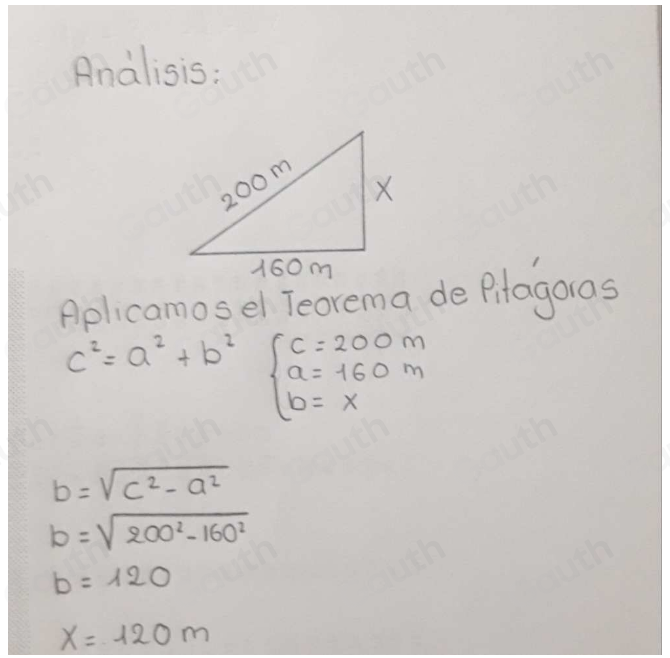 Análisis:
200 m
X
160 m
Aplicamos el Teorema de Pitágoras
c² = a² + b² { c = 200 m
a = 160 m
b = x
b = √c² - a²
b = √200² - 160²
b = 120
X = 120 m